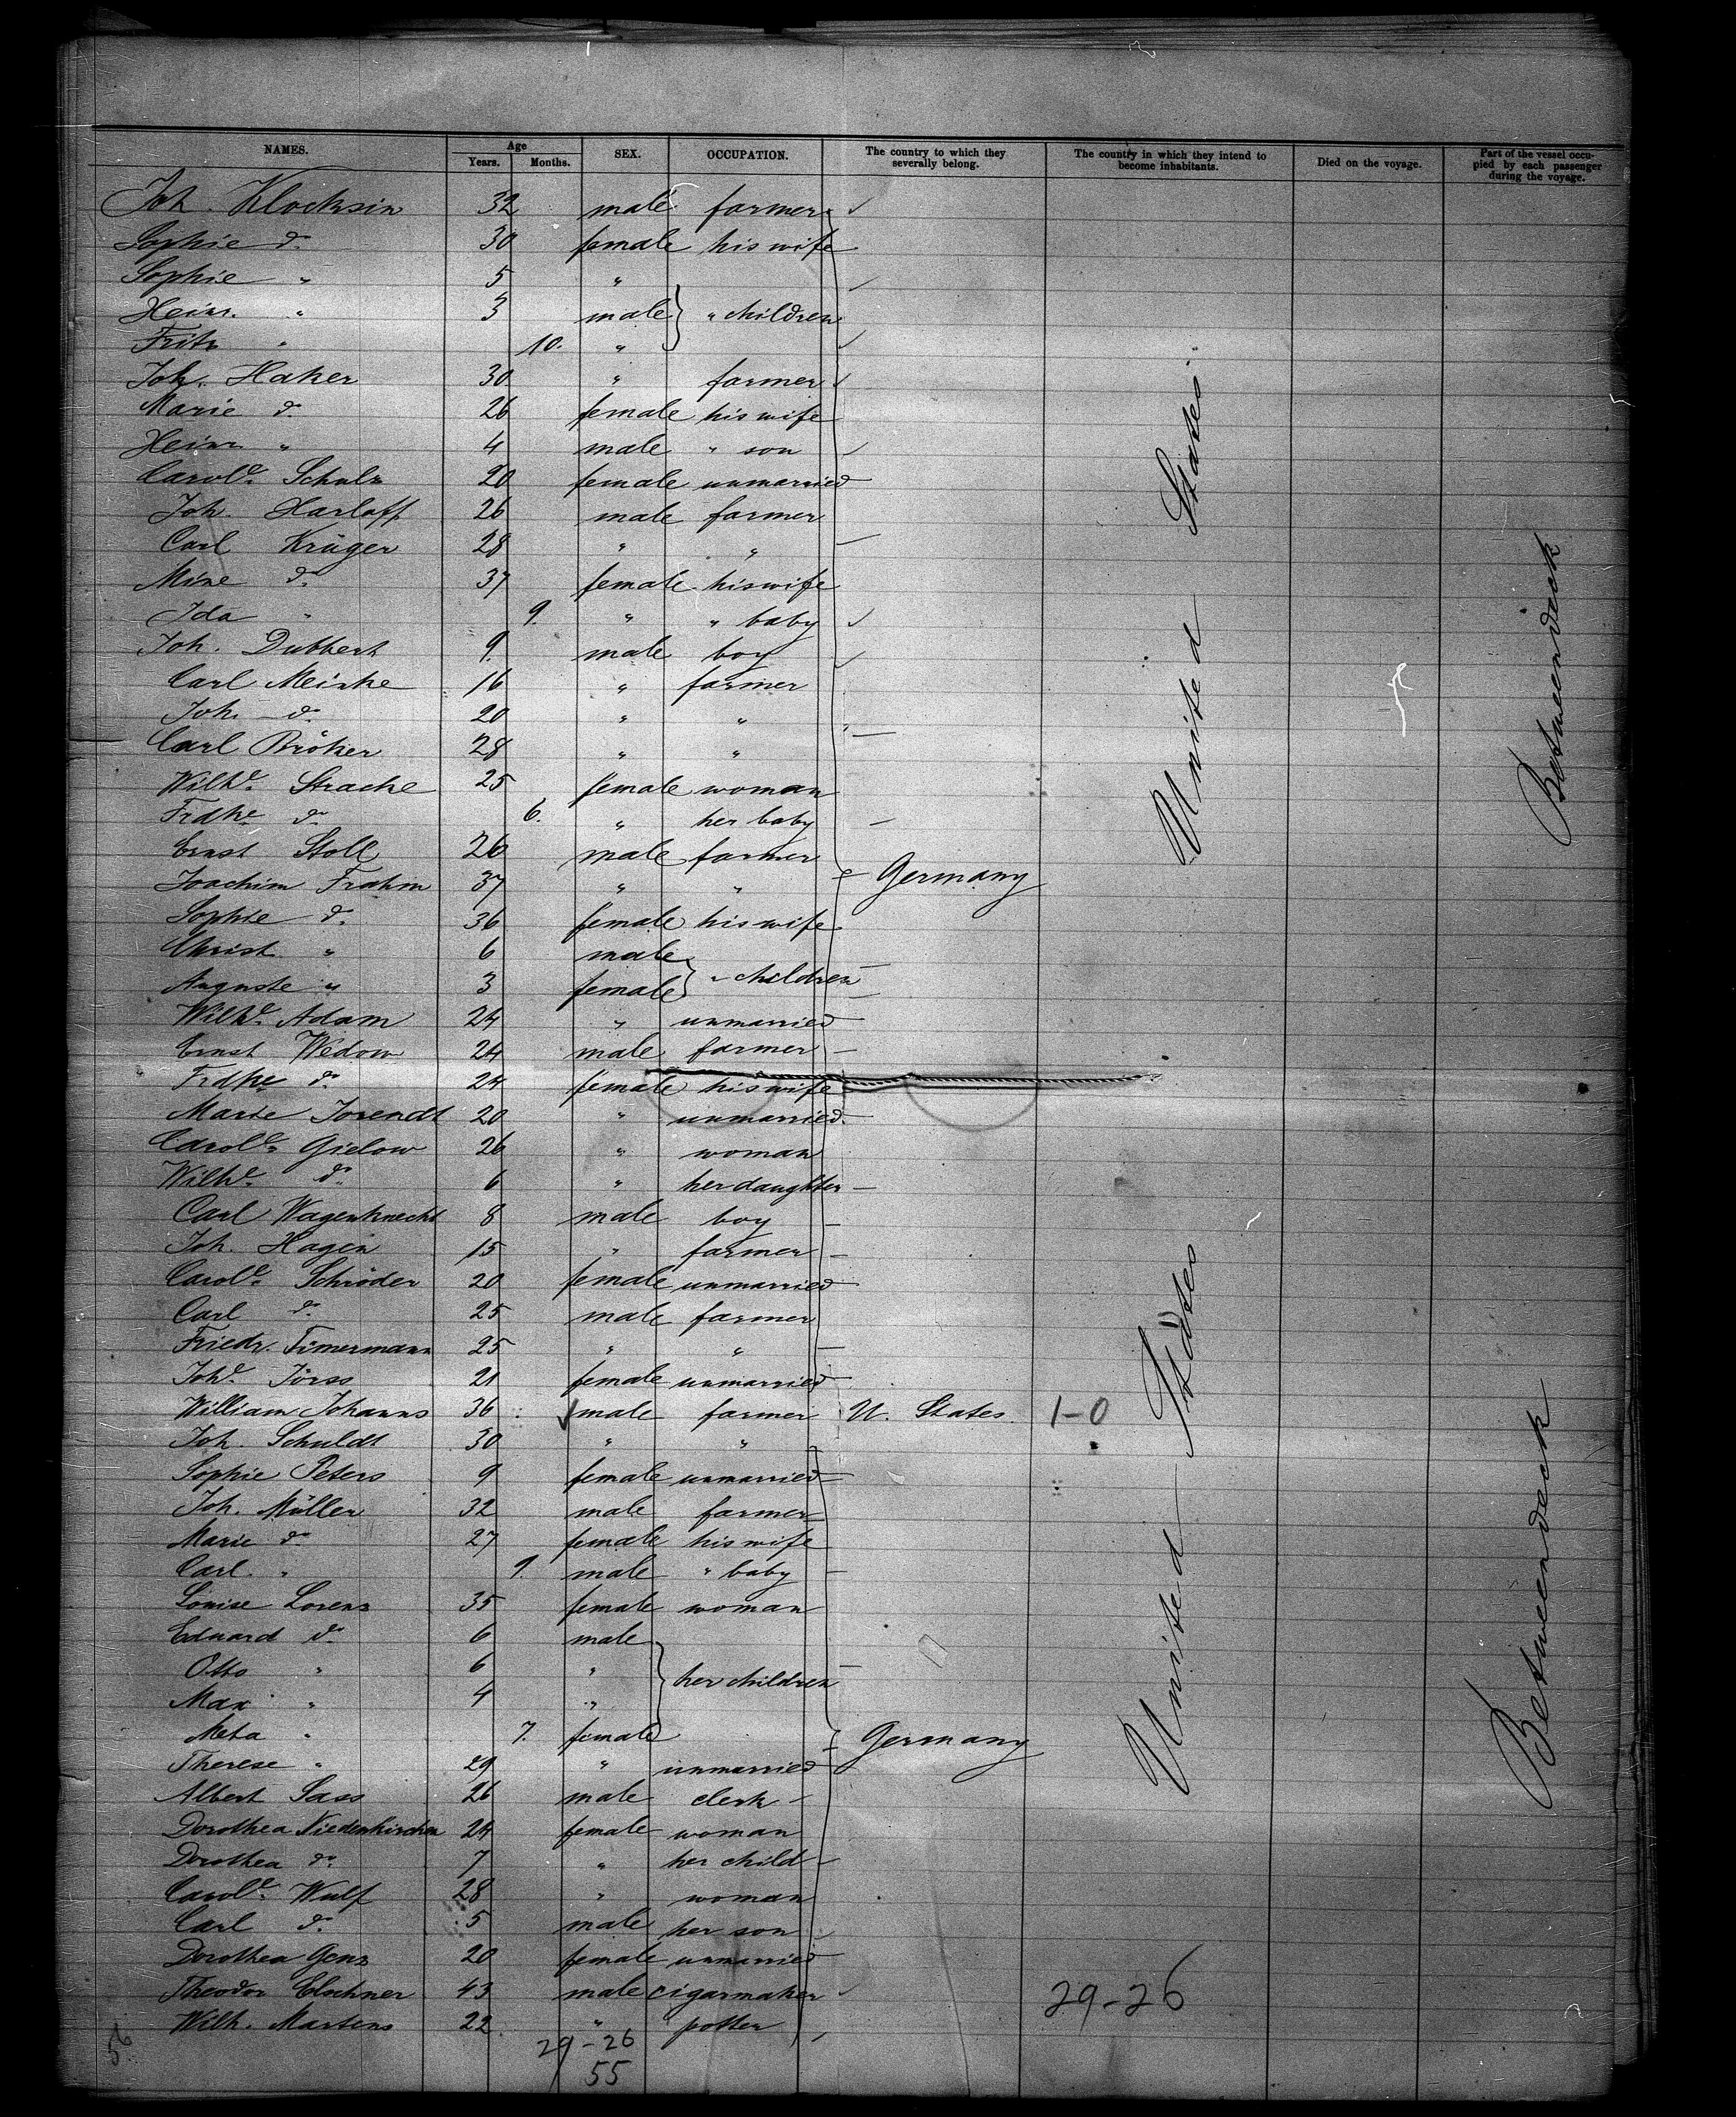 NAMES. Age Years. Months. SEX. OCCUPATION. The country to which they severally belong. The country in which they intend to become inhabitants. Died on the voyage. Part of the vessel occupied by each passenger during the voyage.
Joh. Klocksin 32 male farmer
Sophie do. 30 female his wife
Sophie " 5 "
Heinr. " 3 male " children
Fritz " 10. "
Joh. Haker 30 " farmer
Marie do. 26 female his wife
Heinr " 4 male " son
Carole. Schulz 20 female unmarried
Joh. Harloff 26 male farmer
Carl Krüger 28 " "
Mine do. 37 female his wife
Ida " 9. " " baby
Joh. Dubbert 9. male boy
Carl Meinke 16 " farmer
Joh. do. 20 " "
Carl Bröker 28 " "
Wilhe. Stracke 25 female woman
Frdke do. 6. " her baby
Ernst Stoll 26 male farmer
Joachim Frahm 37 " " Germany
Sophie do. 36 female his wife
Christ. " 6 male
Auguste " 3 female " children
Wilhe. Adam 24 " unmarried
Ernst Wedow 24 male farmer
Frdke do. 24 female his wife
Marie Jorendt 20 " unmarried
Carole. Gielow 26 " woman
Wilhe. do. 6 " her daughter
Carl Wagenknecht 8 male boy
Joh. Hagen 15 " farmer
Carole. Schröder 20 female unmarried
Carl do. 25 male farmer
Friedr. Timermann 25 " "
Johe. Jörss 21 female unmarried
William Johanns 36 male farmer U. States 1-0
Joh. Schuldt 30 " "
Sophie Peters 9 female unmarried
Joh. Müller 32 male farmer
Marie do. 27 female his wife
Carl. " 9. male " baby
Louise Lorenz 35 female woman
Eduard do. 6 male
Otto " 6 " her children
Max " 4 "
Meta " 7. female Germany
Therese " 29 " unmarried
Albert Sass 26 male clerk
Dorothea Niedenkirchen 24 female woman
Dorothea do. 7 " her child
Carole. Wulf 28 " woman
Carl do. 5 male her son
Dorothea Genz 20 female unmarried
Theodor Elschner 43 male cigarmaker 29-26
Wilh. Martens 22 " potter
29-26
55
56
United States
United States
Betweendeck
Betweendeck